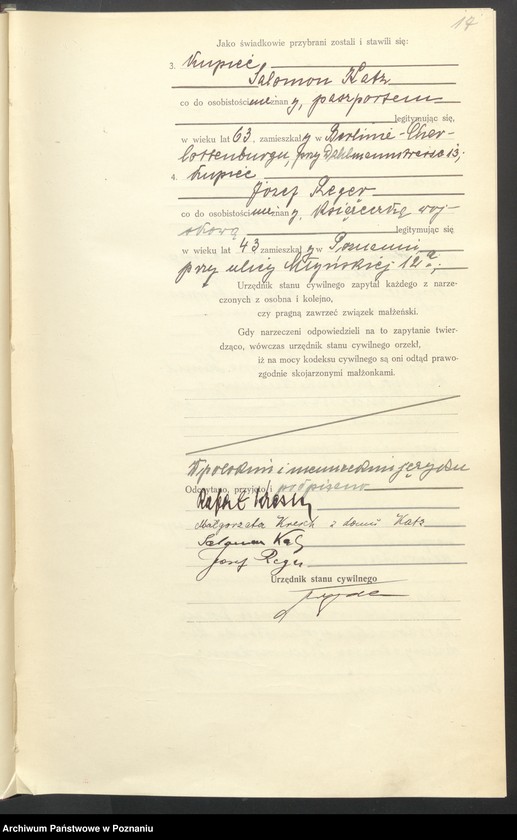 17
Jako świadkowie przybrani zostali i stawili się:
3. Kupiec
Salomon Katz
co do osobistości nieznany, paszportem
legitymując się,
w wieku lat 63, zamieszkały w Berlinie-Char-
lottenburgu, przy Dahlmannstrasse 13;
4. Kupiec
Józef Reger
co do osobistości nieznany, Książeczką woj-
skową legitymując się
w wieku lat 43 zamieszkały w Poznaniu
przy ulicy Młyńskiej 12a;
Urzędnik stanu cywilnego zapytał każdego z narze-
czonych z osobna i kolejno,
czy pragną zawrzeć związek małżeński.
Gdy narzeczeni odpowiedzieli na to zapytanie twier-
dząco, wówczas urzędnik stanu cywilnego orzekł,
iż na mocy kodeksu cywilnego są oni odtąd prawo-
zgodnie skojarzonymi małżonkami.
W polskim i niemieckim języku
Odczytano, przyjęto i podpisano
Małgorzata Kresh z domu Katz
Salomon Katz
Josef Reger
Urzędnik stanu cywilnego
Archiwum Państwowe w Poznaniu